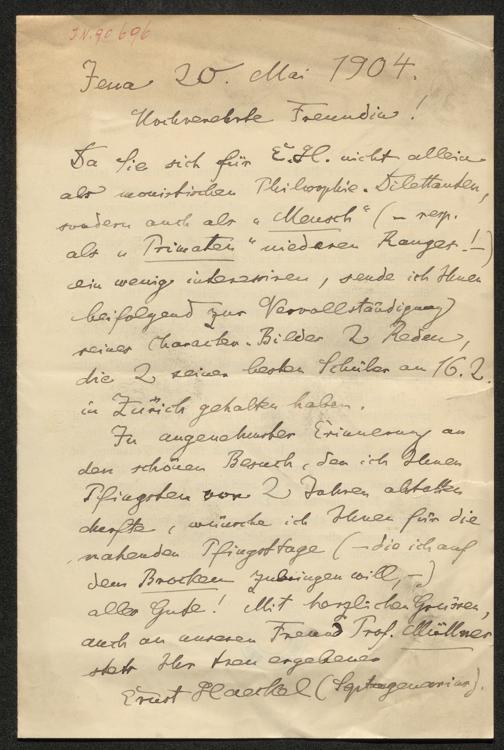 I.N. 90696
Jena 20. Mai 1904.
Hochverehrte Freundin!
Da Sie sich für E.H. nicht allein
als monistischen Philosophie-Dilettanten,
sondern auch als „Mensch“ (– resp.
als „Primaten“ niederen Ranges!–)
ein wenig interessiren, sende ich Ihnen
beifolgend zur Vervollständigung
seines Charakter-Bildes 2 Reden,
die 2 seiner besten Schüler am 16.2.
in Zürich gehalten haben.
In angenehmster Erinnerung an
den schönen Besuch, den ich Ihnen
Pfingsten vor 2 Jahren abstatten
durfte, wünsche ich Ihnen für die
nahenden Pfingsttage (– die ich auf
dem Brocken zubringen will, –)
alles Gute! Mit herzlichen Grüssen,
auch an unseren Freund Prof. Müllner
stets Ihr treu ergebener
Ernst Haeckel (Septuagenarius).